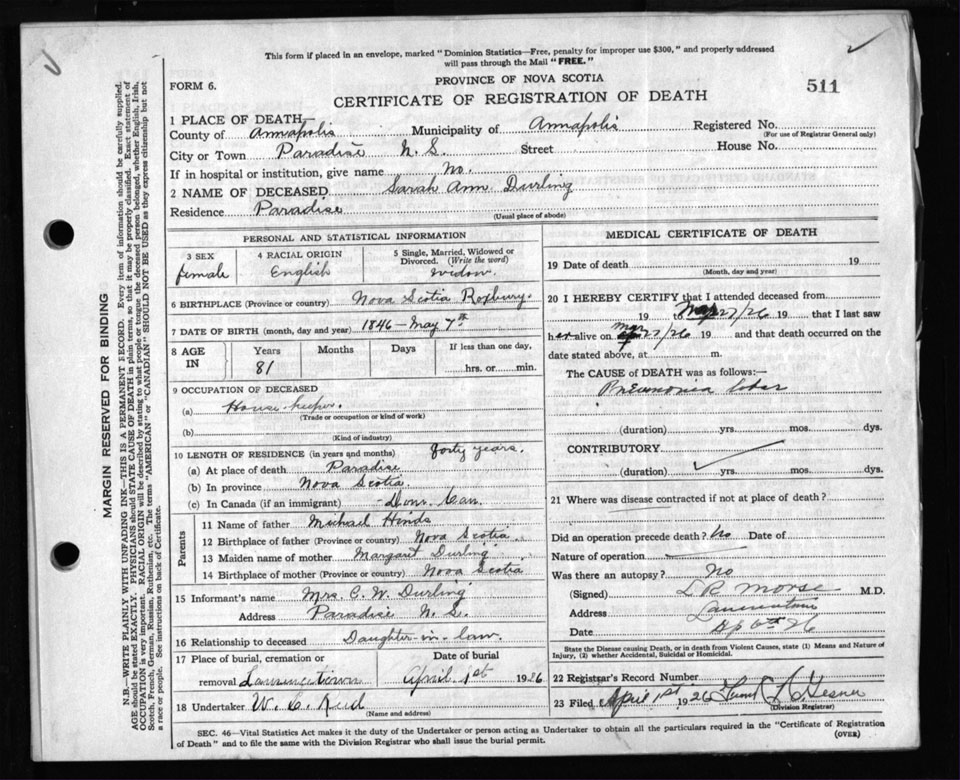 This form if placed in an envelope, marked "Dominion Statistics—Free, penalty for improper use $300," and properly addressed
will pass through the Mail "FREE."
PROVINCE OF NOVA SCOTIA
FORM 6.
CERTIFICATE OF REGISTRATION OF DEATH
511
1 PLACE OF DEATH—
County of Annapolis Municipality of Annapolis Registered No.
(For use of Registrar General only)
City or Town Paradise N. S. Street House No.
If in hospital or institution, give name No.
2 NAME OF DECEASED Sarah Ann Durling
Residence Paradise
(Usual place of abode)
PERSONAL AND STATISTICAL INFORMATION
3 SEX 4 RACIAL ORIGIN 5 Single, Married, Widowed or
Divorced. (Write the word)
female English widow.
6 BIRTHPLACE (Province or country) Nova Scotia Roxbury.
7 DATE OF BIRTH (month, day and year) 1846 – May 7th
8 AGE IN Years Months Days If less than one day,
81 hrs. or min.
9 OCCUPATION OF DECEASED
(a) House keeper.
(Trade or occupation or kind of work)
(b)
(Kind of industry)
10 LENGTH OF RESIDENCE (in years and months) forty years.
(a) At place of death Paradise
(b) In province Nova Scotia.
(c) In Canada (if an immigrant) Dom. Can.
Parents
11 Name of father Michael Hinds
12 Birthplace of father (Province or country) Nova Scotia.
13 Maiden name of mother Margaret Durling
14 Birthplace of mother (Province or country) Nova Scotia
15 Informant's name Mrs. C. W. Durling
Address Paradise N. S.
16 Relationship to deceased Daughter-in-law.
17 Place of burial, cremation or Date of burial
removal Lawrencetown April 1st 1926
18 Undertaker W. C.
(Name and address)
MEDICAL CERTIFICATE OF DEATH
19 Date of death 19
(Month, day and year)
20 I HEREBY CERTIFY that I attended deceased from
19 to Mar 27/26 19 that I last saw
her alive on Mar 27/26 19 and that death occurred on the
date stated above, at m.
The CAUSE OF DEATH was as follows:—
Pneumonia lobar
(duration) yrs. mos. dys.
CONTRIBUTORY
(duration) yrs. mos. dys.
21 Where was disease contracted if not at place of death?
Did an operation precede death? No Date of
Nature of operation
Was there an autopsy? No
(Signed) L R Morse M.D.
Address Lawrencetown
Date Ap 6th 26
State the Disease causing Death, or in death from Violent Causes, state (1) Means and Nature of
Injury, (2) whether Accidental, Suicidal or Homicidal.
22 Registrar's Record Number
23 Filed April 1st 1926 Gesner
(Division Registrar)
SEC. 46—Vital Statistics Act makes it the duty of the Undertaker or person acting as Undertaker to obtain all the particulars required in the "Certificate of Registration
of Death" and to file the same with the Division Registrar who shall issue the burial permit.
(OVER)
MARGIN RESERVED FOR BINDING
N.B.—WRITE PLAINLY WITH UNFADING INK—THIS IS A PERMANENT RECORD. Every item of information should be carefully supplied.
AGE should be stated EXACTLY. PHYSICIANS should STATE CAUSE OF DEATH in plain terms, so that it may be properly classified. Exact statement of
OCCUPATION is very important. RACIAL ORIGIN will be described by stating to what people or tongue the deceased person belonged, whether English, Irish,
Scotch, French, German, Russian, Ruthenian, etc. The terms "AMERICAN" or "CANADIAN" SHOULD NOT BE USED as they express citizenship but not
a race or people. See instructions on back of Certificate.